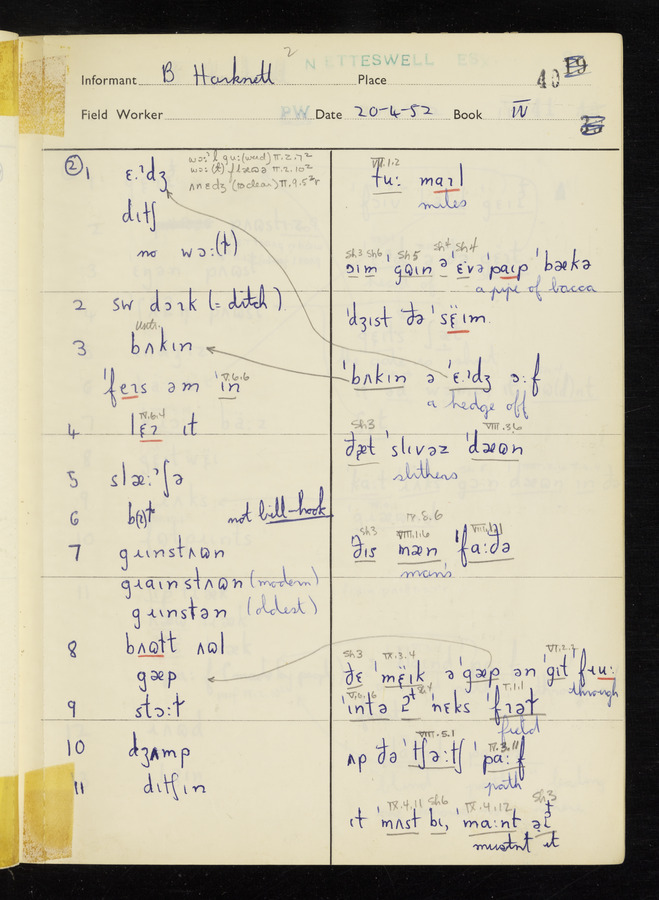 2
NETTESWELL ESS
Informant B Harknett Place
40 19
Field Worker PW Date 20-4-52 Book IV
② 1 ɛ.ˀdʒ
wɔːˀl gu: (wud) II.2.7²
wɔ: (t) II.2.10²
ʌnɛdʒ (to clear) II.9.5²
dɪtʃ
no wɔ:(t)
2 sw dɔɪk (= ditch)
3 bʌkɪn
ˈfeɪs əm ˈɪn V.6.6
4 lɛɪ ɪt IV.6.4
5 slæ:ˀʃə
6 b(ɪ)t not bill-hook
7 gɹɪnstʌɒn
gɹaɪnstʌɒn (modern)
gɹɪnstən (oldest)
8 bʌɒtt ʌɒl
gæp
9 stɔ:t
10 dʒʌmp
11 dɪtʃɪn
VII.1.2
tu: maɪl
miles
Sh3 Sh6 Sh5 Sh4 Sh4
ɔɪm ˈgɒɪn ə ˈɛvə ˈpaɪp ˈbækə
a pipe of bacca
ˈdʒɪst ðə ˈsɛ̈ɪm
ˈbʌkɪn ə ˈɛ.ˀdʒ ɔ:f
a hedge off
Sh3 VIII.3.6
ðæt ˈslɪvəz ˈdæɒn
slithers
IX.8.6
Sh3 VIII.1.6 VIII.1.1
ðɪs mæn ˈfa:ðə
man's
Sh3 IX.3.4 VI.2.7
ðɛ ˈmɛ̈ɪk ə ˈgæp ən ˈgɪt fɹu:
through
V.6.6 I.1.1
ˈɪntə ðˀ ˈnɛks ˈfɪət
field
VIII.5.1 IV.3.11
ʌp ðə ˈtʃə:tʃ ˈpa:f
path
IX.4.11 Sh6 IX.4.12 Sh3
ɪt ˈmʌst bɪ, ˈma:nt ət
mustn't it